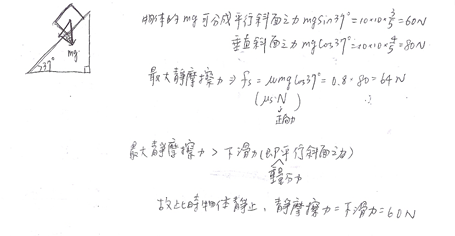 物体的mg可分成平行斜面之力 mgsin37°=10×10×3/5=60N
垂直斜面之力 mgcos37°=10×10×4/5=80N
mg
37°
最大静摩擦力⇒ fs=μmgcos37°=0.8×80=64N
(μs·N)
正向力
最大静摩擦力 > 下滑力(即平行斜面之力)
重力分力
故此時物体静止,静摩擦力=下滑力=60N